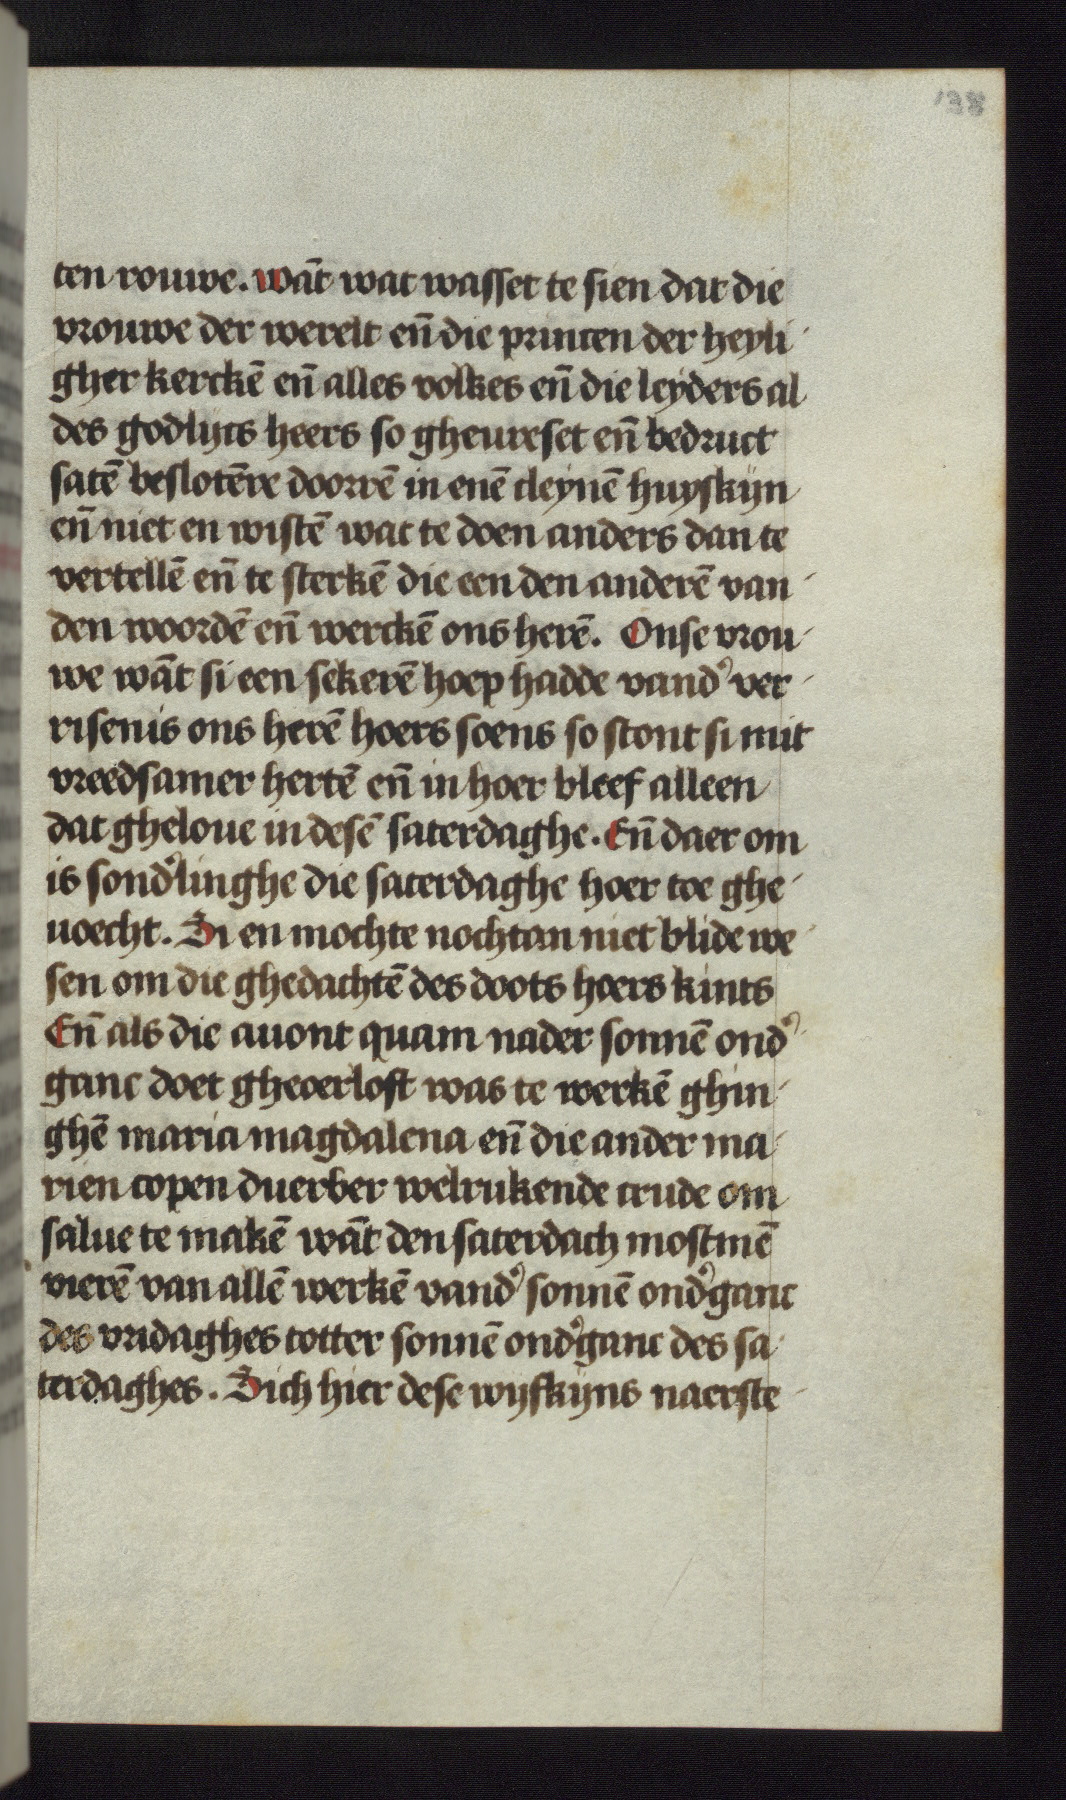 138
ten rouwe. wāt wat wasset te sien dat die
vrouwe der werelt eñ die princen der heyli
gher kerckē eñ alles volkes eñ die leyders al
des godlijcs heers so gheureset eñ bedruct
satē beslotēre doorrē in enē cleynē huyskijn
eñ niet en wistē wat te doen anders dan te
vertellē eñ te sterkē die een den anderē van
den woordē eñ werckē ons herē. Onse vrou
we wāt si een sekerē hoep hadde vand᾽ ver
risenis ons herē hoers soens so stont si mit
vreedsamer hertē eñ in hoer bleef alleen
dat gheloue in desē saterdaghe. Eñ daer om
is sond᾽linghe die saterdaghe hoer toe ghe
uoecht. Si en mochte nochtan niet blide we
sen om die ghedachtē des doots hoers kints
Eñ als die auont quam nader sonnē ond᾽
ganc doet gheoerloft was te werkē ghin
ghē maria magdalena eñ die ander ma
rien copen duerber welrukende crude om
salue te makē wāt den saterdach mostmē
vierē van allē werkē vand᾽ sonnē ond᾽ganc
des vridaghes totter sonnē ond᾽ganc des sa
terdaghes. Sich hier dese wijfkijns naerste